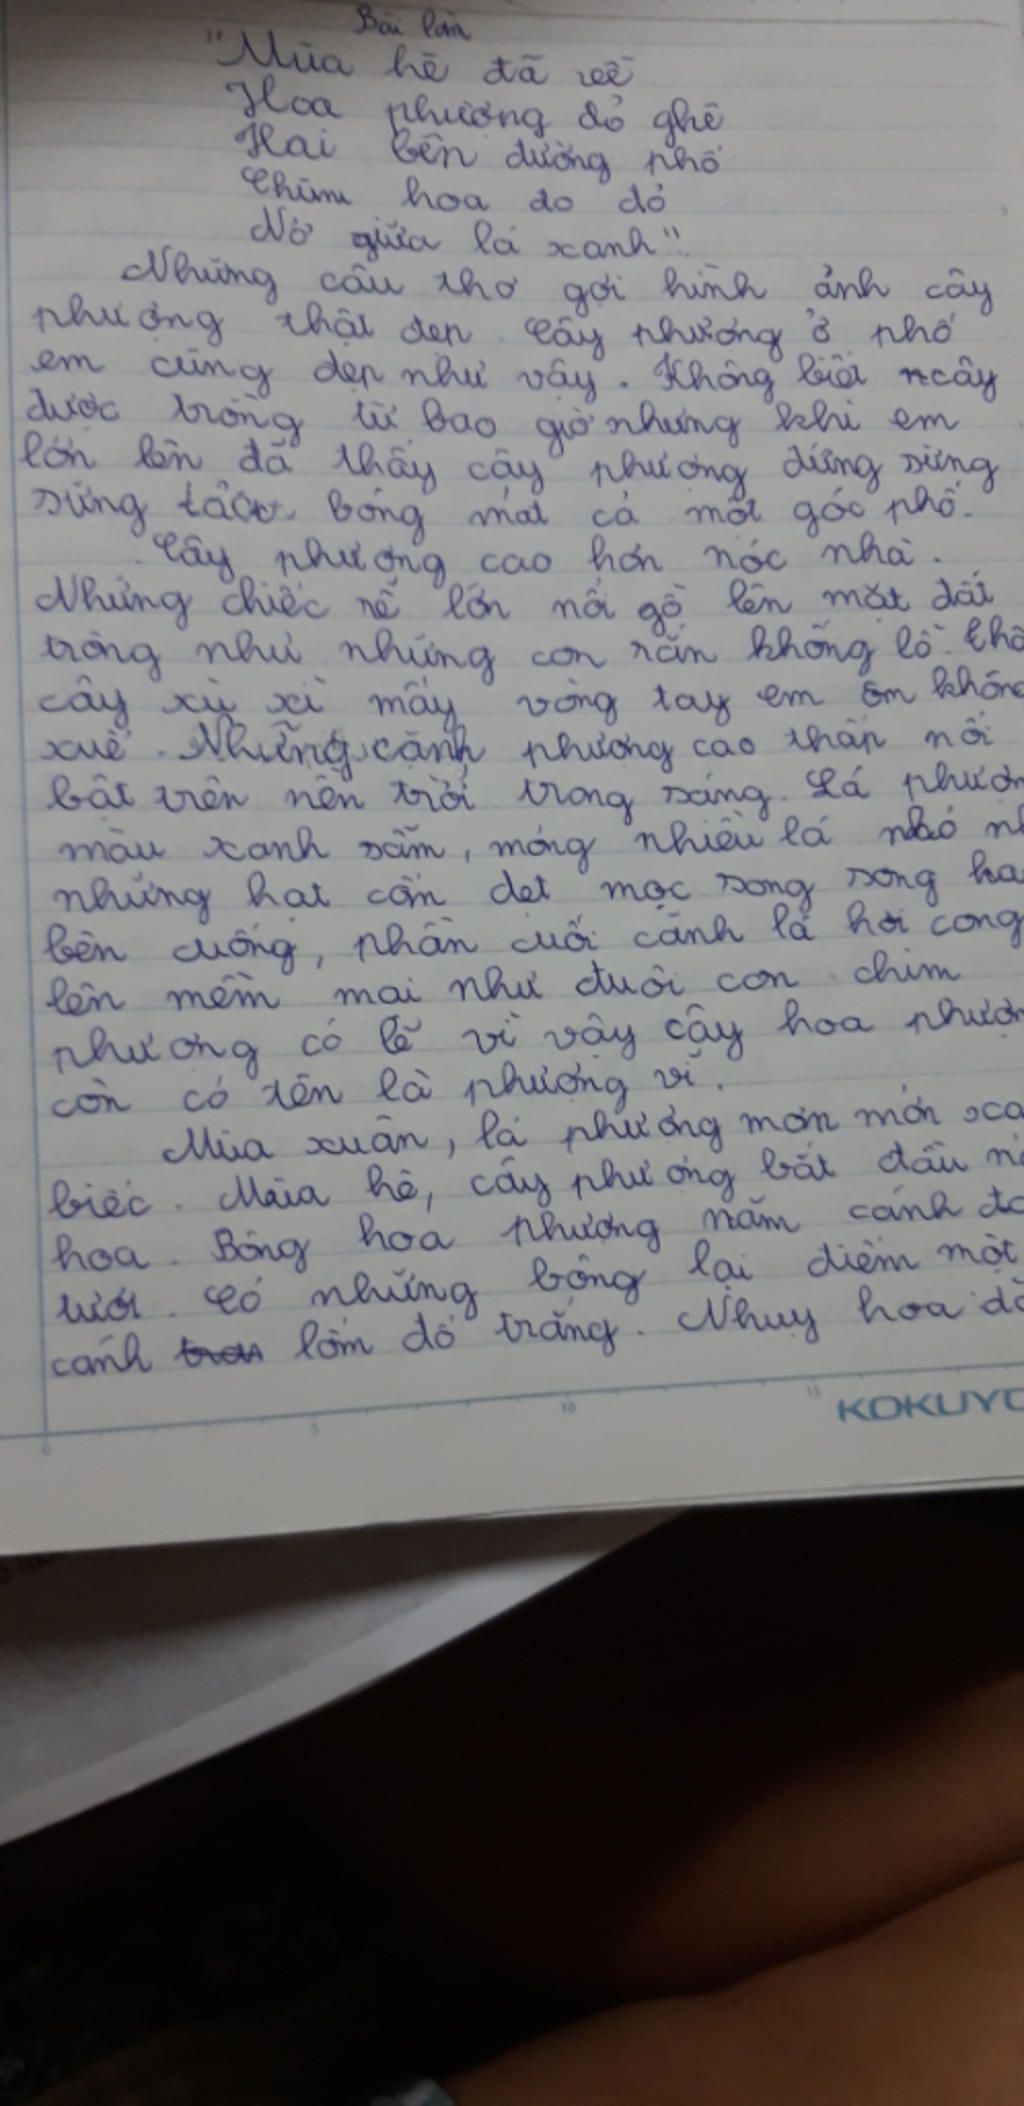 Bài làm
"Mùa hè đã về
Hoa phượng đỏ ghê
Hai bên đường phố
Chùm hoa đo đỏ
Nở giữa lá xanh".
Những câu thơ gợi hình ảnh cây
phượng thật đẹp. Cây phượng ở phố
em cũng đẹp như vậy. Không biết cây
được trồng từ bao giờ nhưng khi em
lớn lên đã thấy cây phượng đứng sừng
sững bóng mát cả một góc phố.
Cây phượng cao hơn nóc nhà.
Những chiếc rễ lớn nổi gồ lên mặt đất
trông như những con rắn khổng lồ. thâ
cây xù xì mấy vòng tay em ôm khôn
xuể. Những cành phượng cao thấp nổi
bật trên nền trời trong sáng. Lá phượn
màu xanh sẫm, mỏng nhiều lá nhỏ nh
những hạt cốm dẹt mọc song song ha
bên cuống, phần cuối cành lá hơi cong
lên mềm mại như đuôi con chim
phượng có lẽ vì vậy cây hoa phượn
còn có tên là phượng vĩ.
Mùa xuân, lá phượng mơn mởn xa
biếc. Mùa hè, cây phượng bắt đầu n
hoa. Bông hoa phượng năm cánh đỏ
tươi. Có những bông lại điểm một
cánh lốm đố trắng. Nhuỵ hoa dà
KOKUYO
0 5 10 15